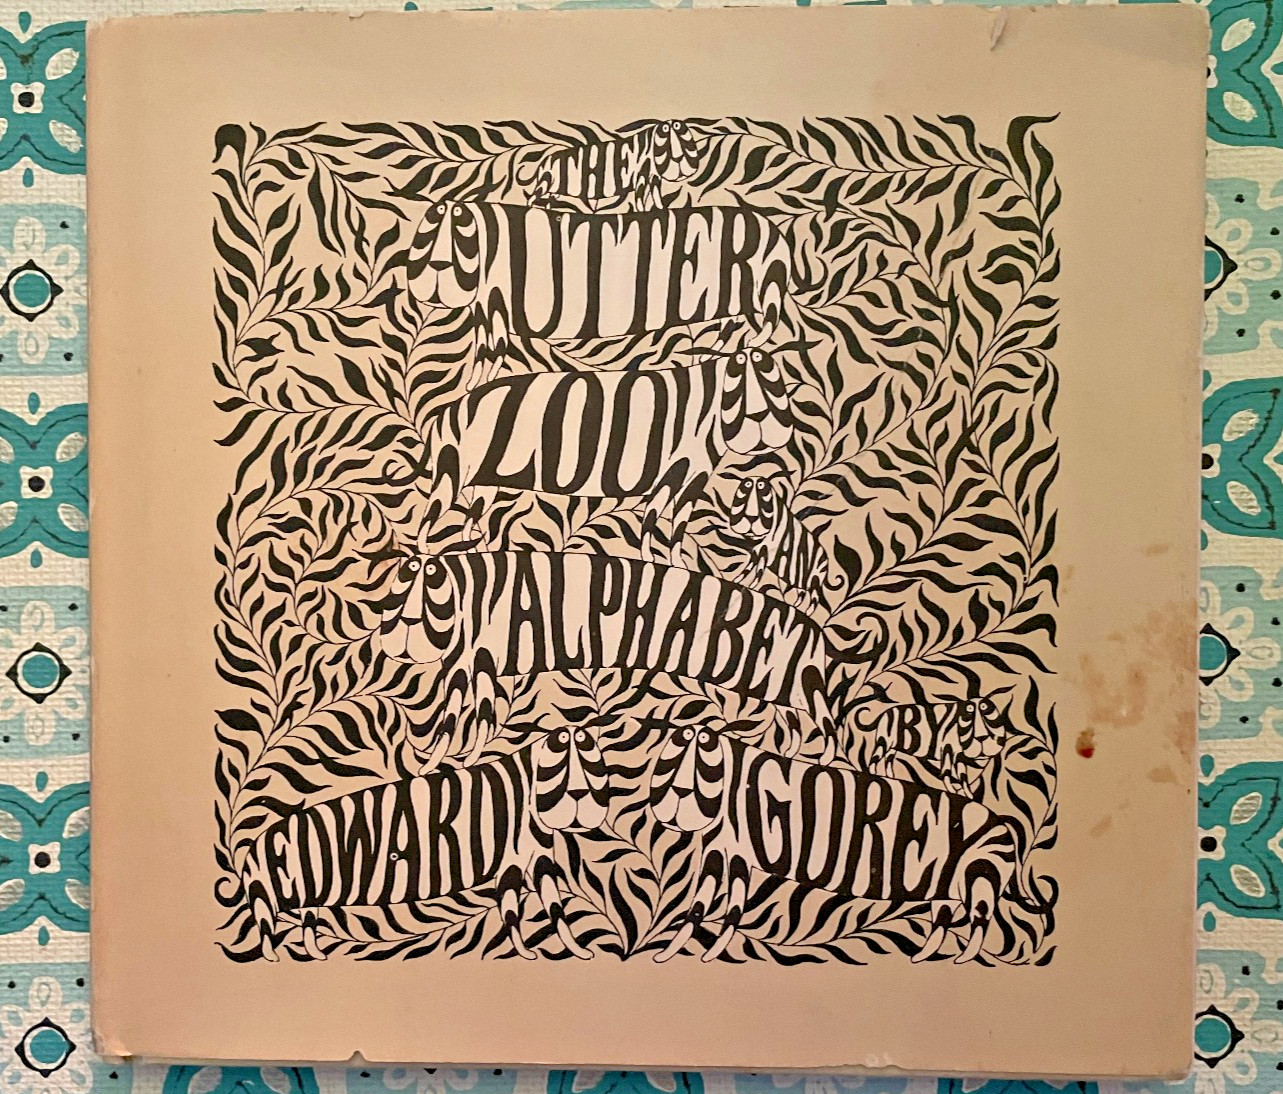 THE
UTTER
ZOO
AN
ALPHABET
BY
EDWARD GOREY